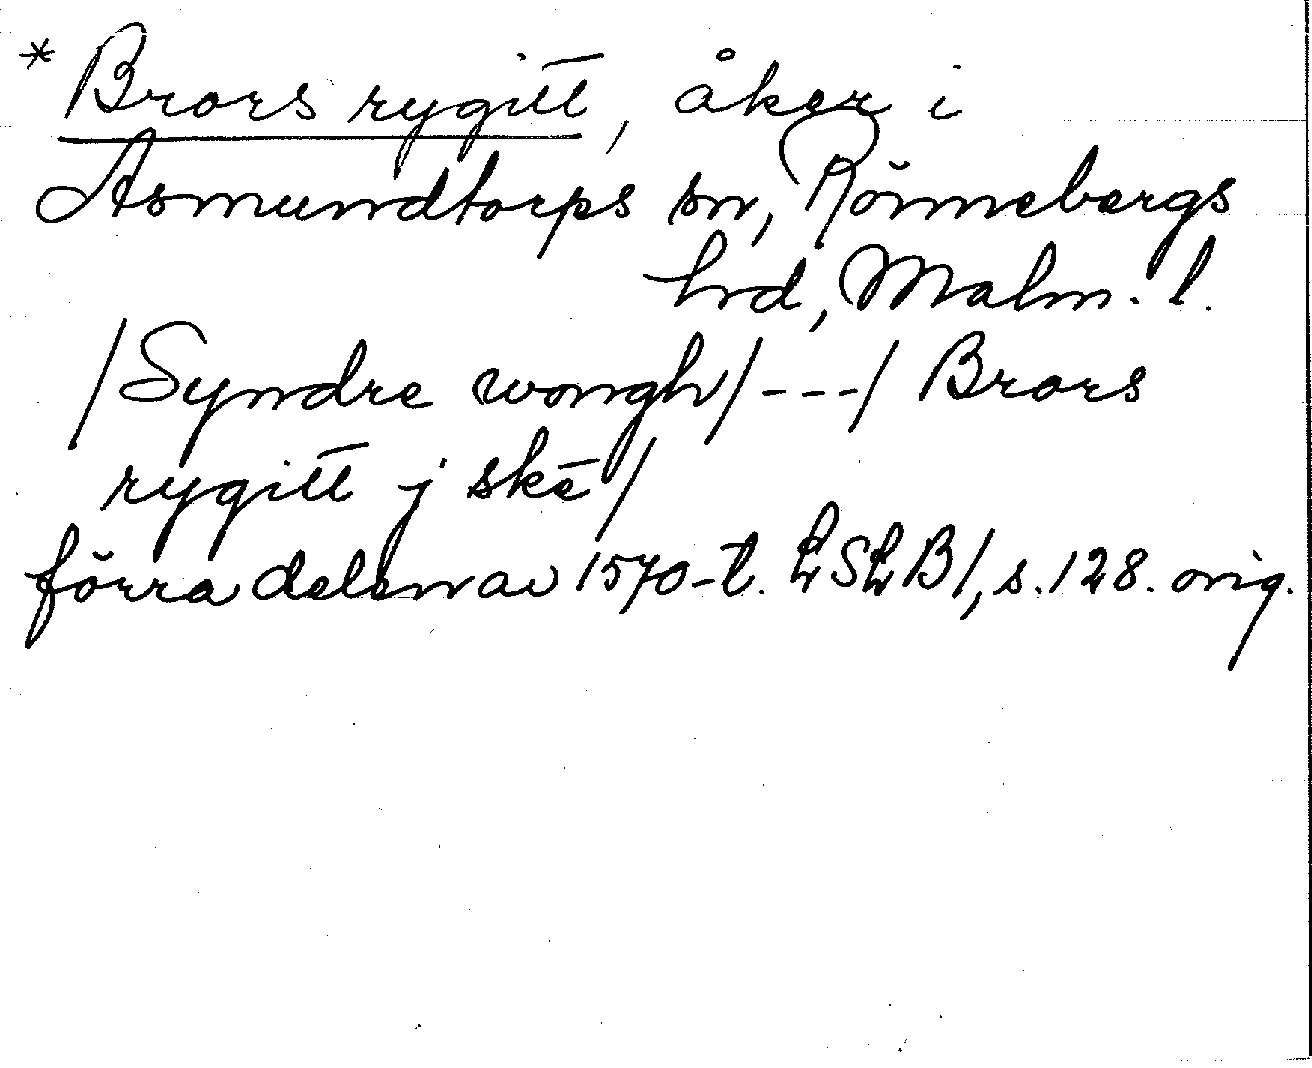 * Brors rygitt, åker i
Asmundtorps sn, Rönnebergs
hrd, Malm. l.
/Syndre wongh/---/ Brors
rygitt j skē/
förra delen av 1570-t. LSLB1, s. 128. orig.